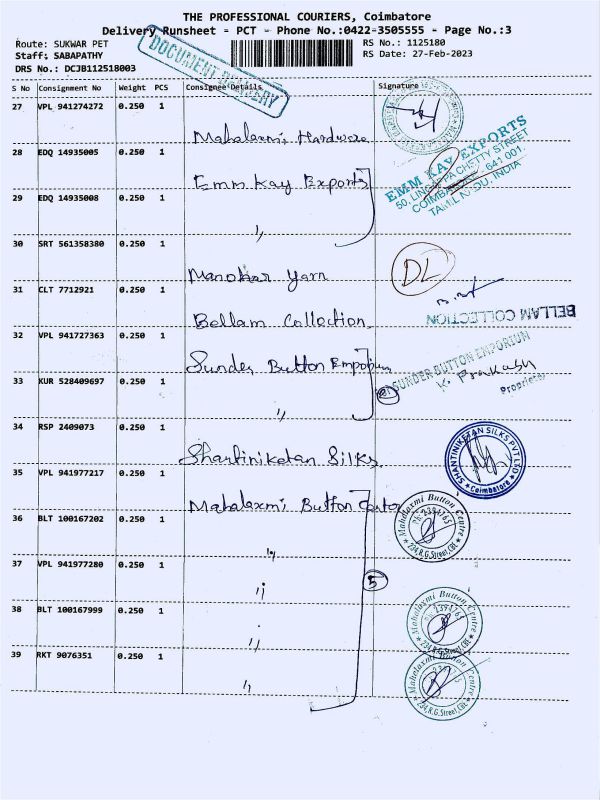 THE PROFESSIONAL COURIERS, Coimbatore
Delivery Runsheet - PCT - Phone No.:0422-3505555 - Page No.:3
Route: SUKWAR PET
RS No.: 1125180
Staff: SABAPATHY
RS Date: 27-Feb-2023
DRS No.: DCJB112518003
DOCUMENT DELIVERY
S No Consignment No Weight PCS Consignee Details Signature
27 VPL 941274272 0.250 1
Mahalaxmi Hardware
28 EDQ 14935005 0.250 1
Emm Kay Exports
EMM KAY EXPORTS
50, LINGAPPA CHETTY STREET
COIMBATORE - 641 001.
TAMIL NADU, INDIA
29 EDQ 14935008 0.250 1
"
30 SRT 561358380 0.250 1
Manohar Yarn
DL
31 CLT 7712921 0.250 1
Bellam Collection
BELLAM COLLECTION
32 VPL 941727363 0.250 1
Sunder Button Emporium
For SUNDER BUTTON EMPORIUM
K. Prakash
Proprietor
33 KUR 528409697 0.250 1
"
2
34 RSP 2409073 0.250 1
Shantiniketan Silks
SHANTINIKETAN SILKS PVT LTD
* Coimbatore *
35 VPL 941977217 0.250 1
Mahalaxmi Button Center
Mahalaxmi Button Centre
Ph: 2394765
234, R.G. Street, CBE
36 BLT 100167202 0.250 1
"
37 VPL 941977280 0.250 1
"
5
38 BLT 100167999 0.250 1
"
Mahalaxmi Button Centre
234, R.G. Street, CBE
39 RKT 9076351 0.250 1
"
Mahalaxmi Button Centre
234, R.G. Street, CBE